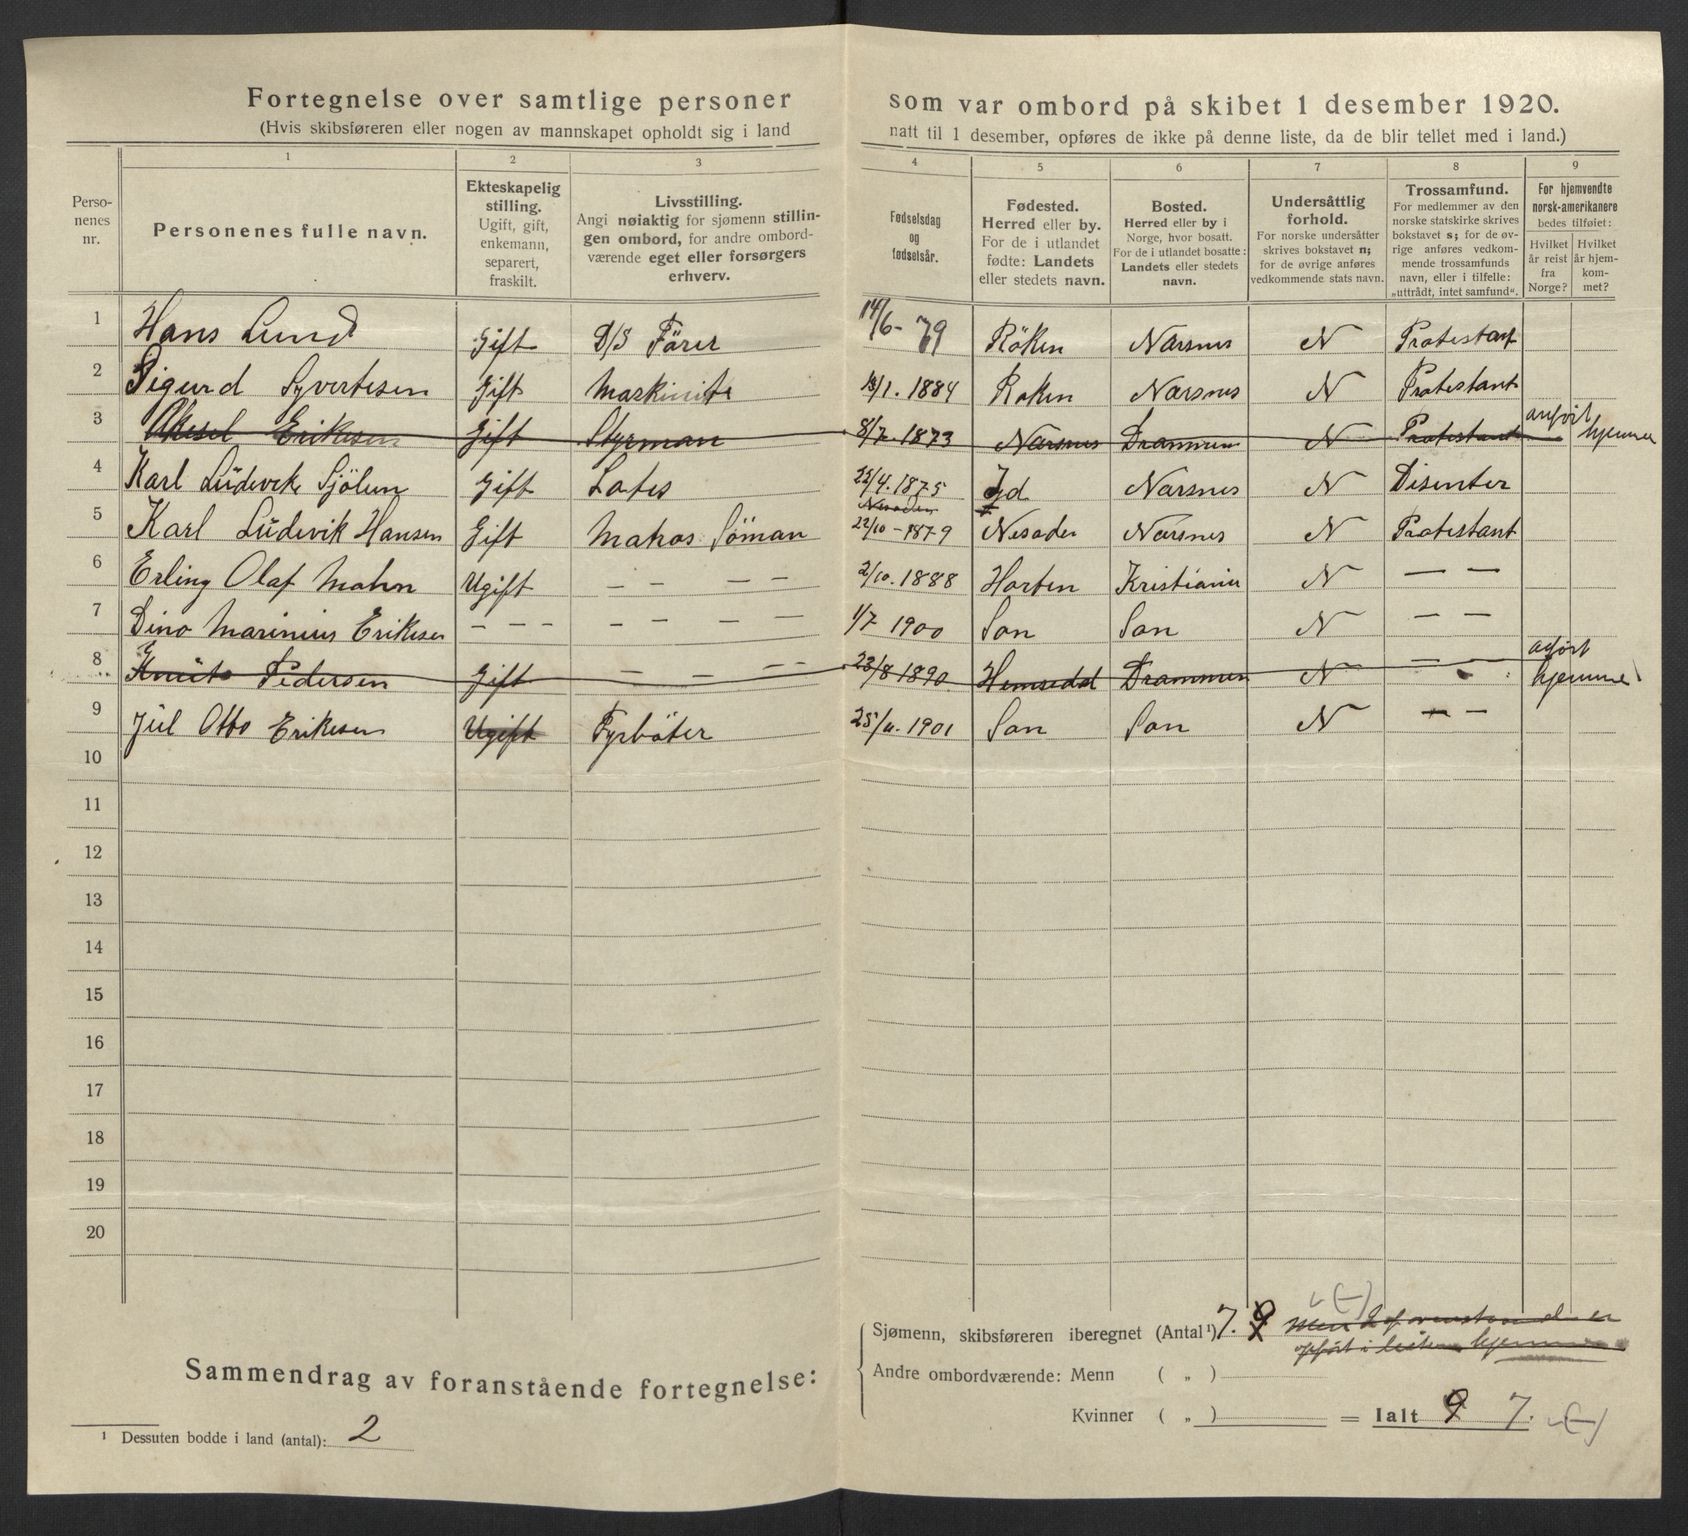 Fortegnelse over samtlige personer som var ombord på skibet 1 desember 1920.
(Hvis skibsføreren eller nogen av mannskapet opholdt sig i land natt til 1 desember, opføres de ikke på denne liste, da de blir tellet med i land.)
1 2 3 4 5 6 7 8 9
Perso-
nenes
nr.
Personenes fulle navn.
Ekteskapelig
stilling.
Ugift, gift,
enkemann,
separert,
fraskilt.
Livsstilling.
Angi nøiaktig for sjømenn stillin-
gen ombord, for andre ombord-
værende eget eller forsørgers
erhverv.
Fødselsdag
og
fødselsår.
Fødested.
Herred eller by.
For de i utlandet
fødte: Landets
eller stedets navn.
Bosted.
Herred eller by i
Norge, hvor bosatt.
For de i utlandet bosatte:
Landets eller stedets
navn.
Undersåttlig
forhold.
For norske undersåtter
skrives bokstavet n;
for de øvrige anføres
vedkommende stats navn.
Trossamfund.
For medlemmer av den
norske statskirke skrives
bokstavet s; for de øv-
rige anføres vedkom-
mende trossamfunds
navn, eller i tilfelle:
„uttrådt, intet samfund“.
For hjemvendte
norsk-amerikanere
bedes tilføiet:
Hvilket
år reist
fra
Norge?
Hvilket
år hjem-
kom-
met?
1 Hans Lund Gift D/S Förer 14/6- 79 Röken Narsnes N Protestant
2 Sigurd Syvertsen Gift Maskinist 13/1. 1884 Roken Narsnes N Protestant
3 Aksel Eriksen Gift Styrman 8/7. 1873 Narsnes Drammen N Protestant anført hjemme
4 Karl Ludevik Sjölun Gift Lots 22/4. 1875 Id Narsnes N Disenter
Nesodden
5 Karl Ludevik Hansen Gift Matros Söman 22/10 - 1879 Nesoden Narsnes N Protestant
6 Erling Olaf Mohn Ugift — — — — 2/10. 1888 Horten Kristiania N — —
7 Dino Marinius Eriksen — — — — — — — 1/7 1900 Son Son N — —
8 Knut Pedersen Gift — — — — 23/8 1890 Hemsedal Drammen N — - anført hjemme
9 Jul Otto Eriksen Ugift Fyrböter 25/11. 1901 Son Son N — —
10
11
12
13
14
15
16
17
18
19
20
Sammendrag av foranstående fortegnelse:
Sjømenn, skibsføreren iberegnet (Antal¹) 7. 9 men 2 af ovenstående er
opført i listen hjemme
Andre ombordværende: Menn ( „ )
Kvinner ( „ ) = Ialt 9 7. (—)
¹ Dessuten bodde i land (antal): 2